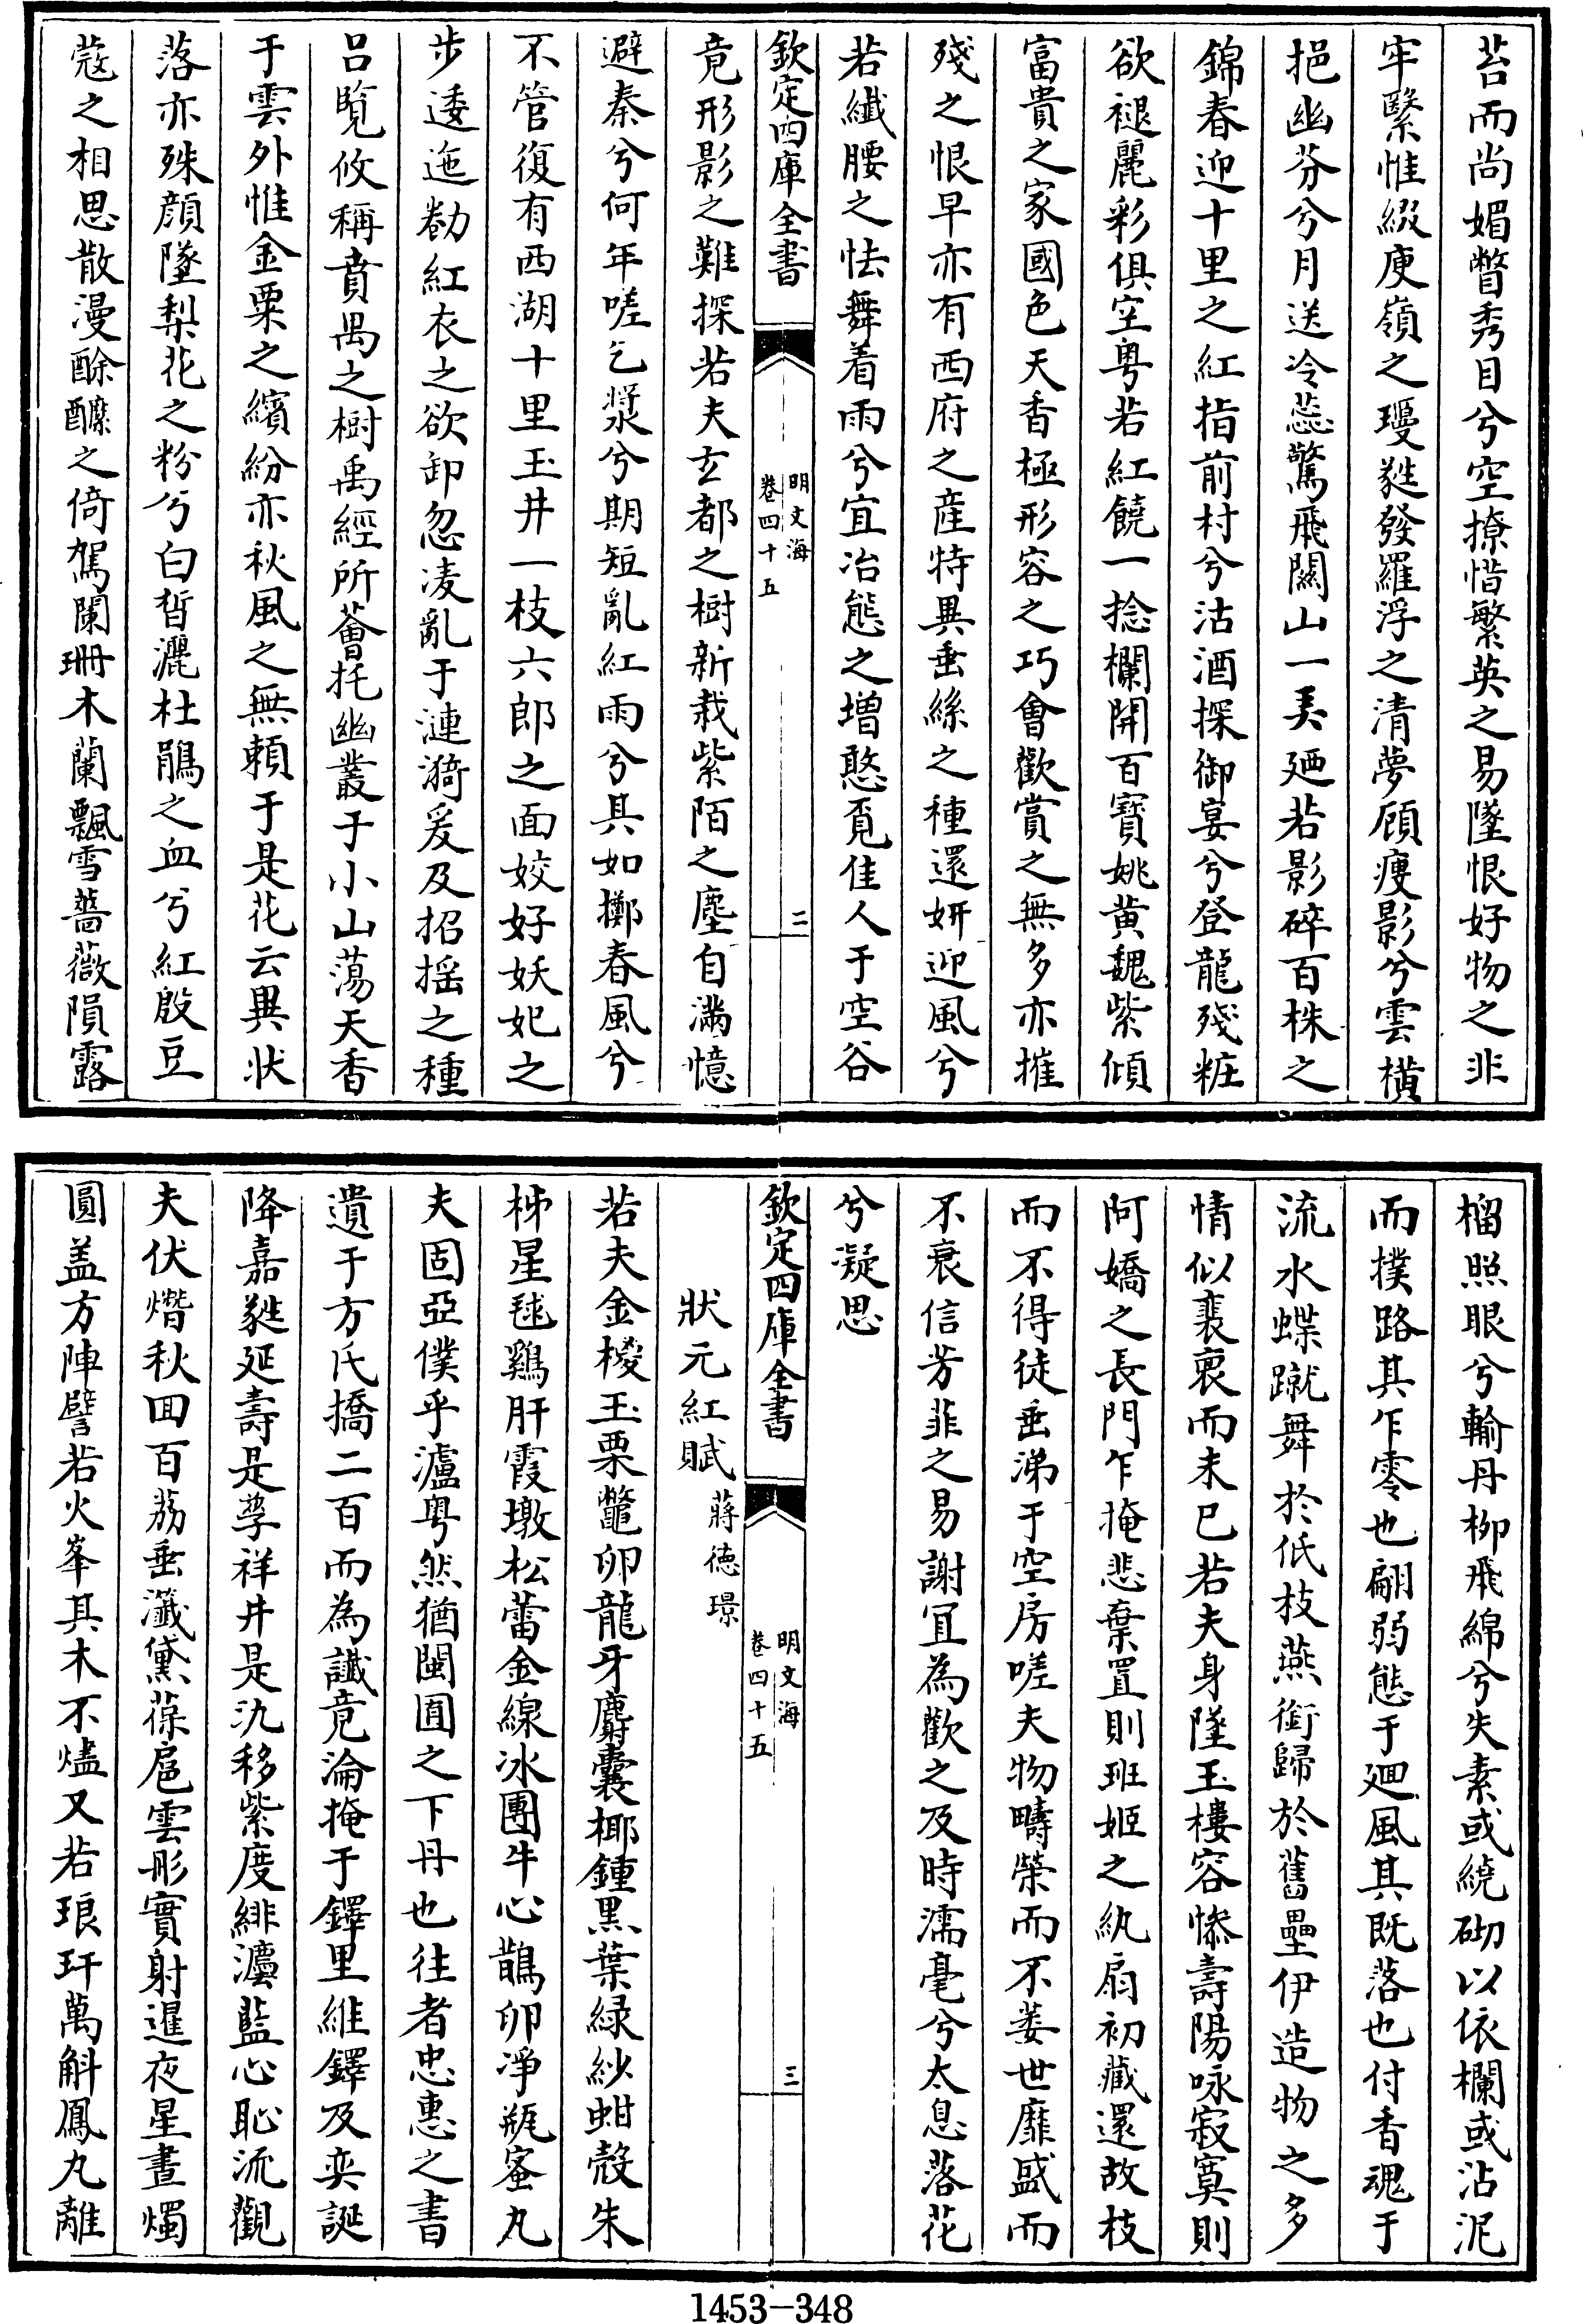 苔而尚媚瞥秀目兮空撩惜繁英之易墜恨好物之非
牢繄惟綴庾嶺之瓊蕤發羅浮之清夢顧瘦影兮雲橫
挹幽芬兮月送冷蕊驚飛關山一弄廼若影碎百株之
錦春迎十里之紅指前村兮沽酒探御宴兮登龍殘粧
欲褪麗彩俱空粤若紅饒一捻欄開百寶姚黄魏紫傾
富貴之家國色天香極形容之巧會歡賞之無多亦摧
殘之恨早亦有西府之産特異垂絲之種還妍迎風兮
若纎腰之怯舞着雨兮宜冶態之増憨覔佳人于空谷
欽定四庫全書
明文海
卷四十五
二
竟形影之難探若夫玄都之樹新栽紫陌之塵自滿憶
避秦兮何年嗟乞漿兮期短亂紅雨兮具如擲春風兮
不管復有西湖十里玉井一枝六郎之面姣好妖妃之
步逶迤勌紅衣之欲卸忽凌亂于漣漪爰及招揺之種
吕覧攸稱賁禺之樹禹經所薈托幽叢于小山蕩天香
于雲外惟金粟之繽紛亦秋風之無頼于是花云異状
落亦殊顔墜梨花之粉兮白晢灑杜鵑之血兮紅殷豆
蔻之相思散漫酴醾之倚駕闌珊木蘭飄雪薔薇隕露
榴照眼兮輸丹柳飛綿兮失素或繞砌以依欄或沾泥
而撲路其乍零也翩弱態于廻風其既落也付香魂于
流水蝶蹴舞於低枝燕銜歸於舊壘伊造物之多
情似褭褭而未已若夫身墜玉樓容慘壽陽咏寂寞則
阿嬌之長門乍掩悲棄置則班姬之紈扇初藏還故枝
而不得徒垂涕于空房嗟夫物疇榮而不萎世靡盛而
不衰信芳菲之易謝冝為歡之及時濡毫兮太息落花
兮凝思
欽定四庫全書
明文海
卷四十五
三
狀元紅賦 蔣徳璟
若夫金椶玉栗鼈卵龍牙麝囊椰鍾黒葉緑紗蚶殻朱
柹星毬鷄肝霞墩松蕾金線冰團牛心鵲卵凈瓶蜜丸
夫固亞僕乎瀘粤然猶閩囿之下丹也往者忠惠之書
遺于方氏撟二百而為讖竟淪掩于鐸里維鐸及奕誕
降嘉蕤延壽是孳祥井是氿移紫度緋瀘藍心恥流觀
夫伏熸秋回百荔垂瀸黛葆扈雲彤實射暹夜星晝燭
圓盖方陣譬若火峯其木不燼又若琅玕萬斛鳳丸離
1453-348